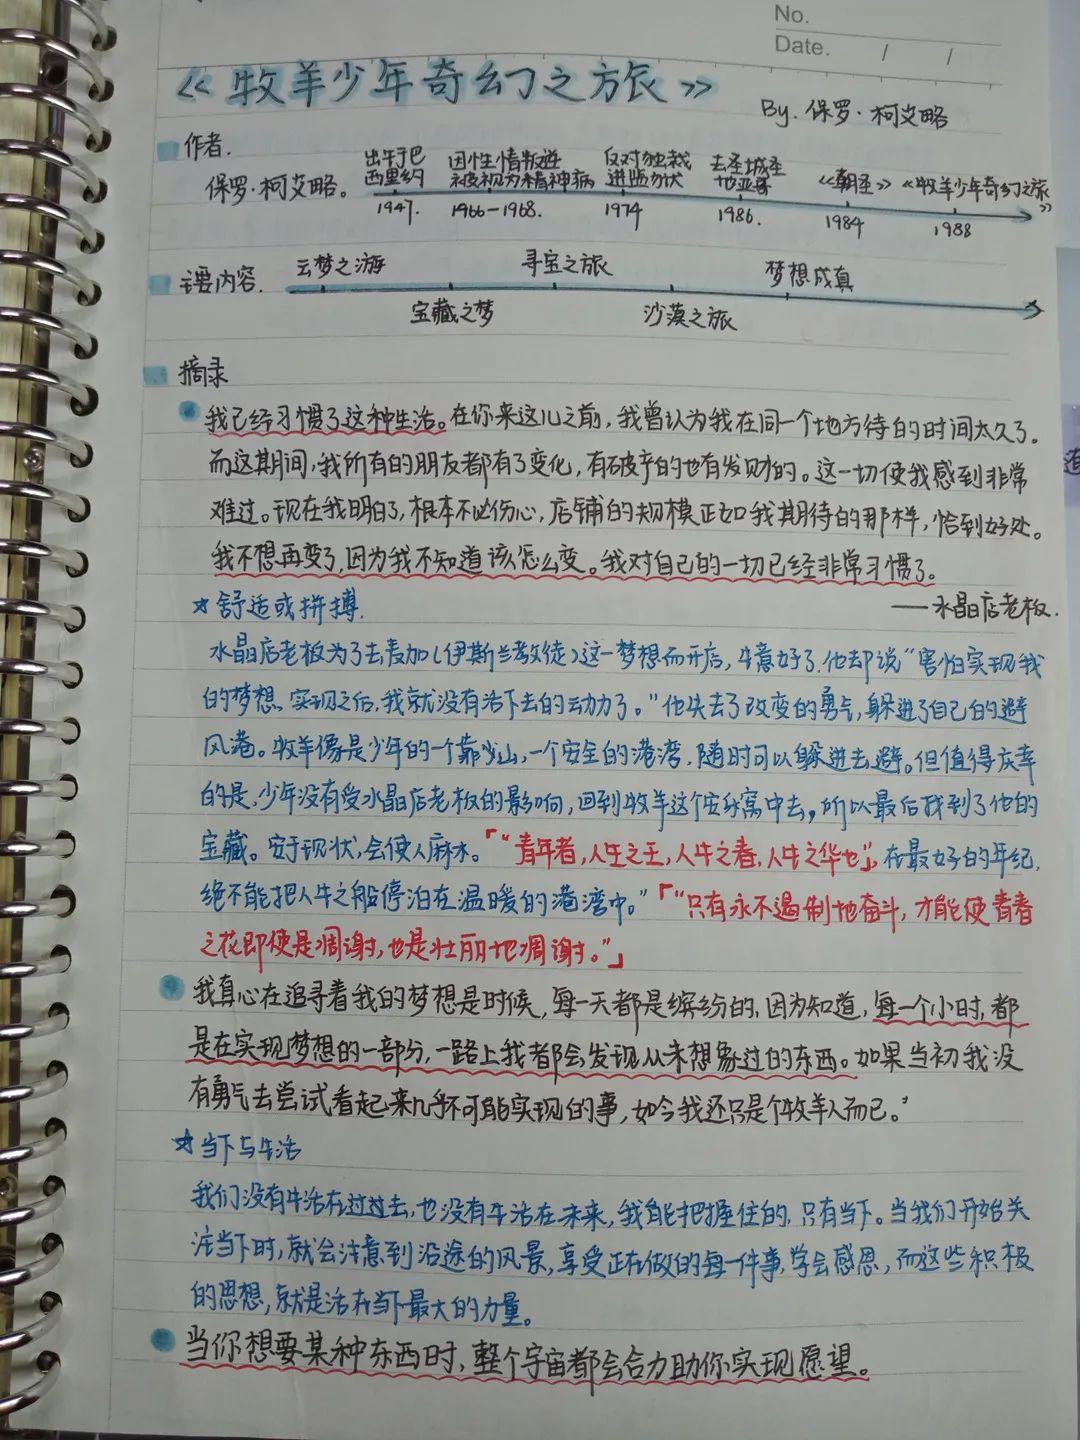 No.
Date. / /
《牧羊少年奇幻之旅》
By. 保罗·柯艾略
作者.
保罗·柯艾略。
出生于巴西里约 1947.
因性情叛逆被视为精神病 1966-1968.
反对独裁进监狱 1974
去圣城圣地亚哥 1986.
《朝圣》 1984
《牧羊少年奇幻之旅》 1988
主要内容.
云梦之游
宝藏之梦
寻宝之旅
沙漠之旅
梦想成真
摘录
我已经习惯了这种生活。在你来这儿之前,我曾认为我在同一个地方待的时间太久了。
而这期间,我所有的朋友都有了变化,有破产的也有发财的。这一切使我感到非常
难过。现在我明白了,根本不必伤心,店铺的规模正如我期待的那样,恰到好处。
我不想再变了,因为我不知道该怎么变。我对自己的一切已经非常习惯了。
——水晶店老板.
☆舒适或拼搏.
水晶店老板为了去麦加(伊斯兰教徒)这一梦想而开店,生意好了.他却说“害怕实现我
的梦想.实现之后,我就没有活下去的动力了。”他失去了改变的勇气,躲进了自己的避
风港。牧羊像是少年的一个靠山,一个安全的港湾,随时可以躲进去避。但值得庆幸
的是,少年没有受水晶店老板的影响,回到牧羊这个安乐窝中去,所以最后找到了他的
宝藏。安于现状,会使人麻木。「“青年者,人生之王,人生之春,人生之华也”」,在最好的年纪,
绝不能把人生之船停泊在温暖的港湾中。”「“只有永不遏制地奋斗,才能使青春
之花即使是凋谢,也是壮丽地凋谢。”」
我真心在追寻着我的梦想是时候,每一天都是缤纷的,因为知道,每一个小时,都
是在实现梦想的一部分,一路上我都会发现从未想象过的东西。如果当初我没
有勇气去尝试看起来几乎不可能实现的事,如今我还只是个牧羊人而已。”
☆当下与生活
我们没有生活在过过去,也没有生活在未来,我能把握住的,只有当下。当我们开始关
注当下时,就会注意到沿途的风景,享受正在做的每一件事,学会感恩,而这些积极
的思想,就是活在当下最大的力量。
当你想要某种东西时,整个宇宙都会合力助你实现愿望。